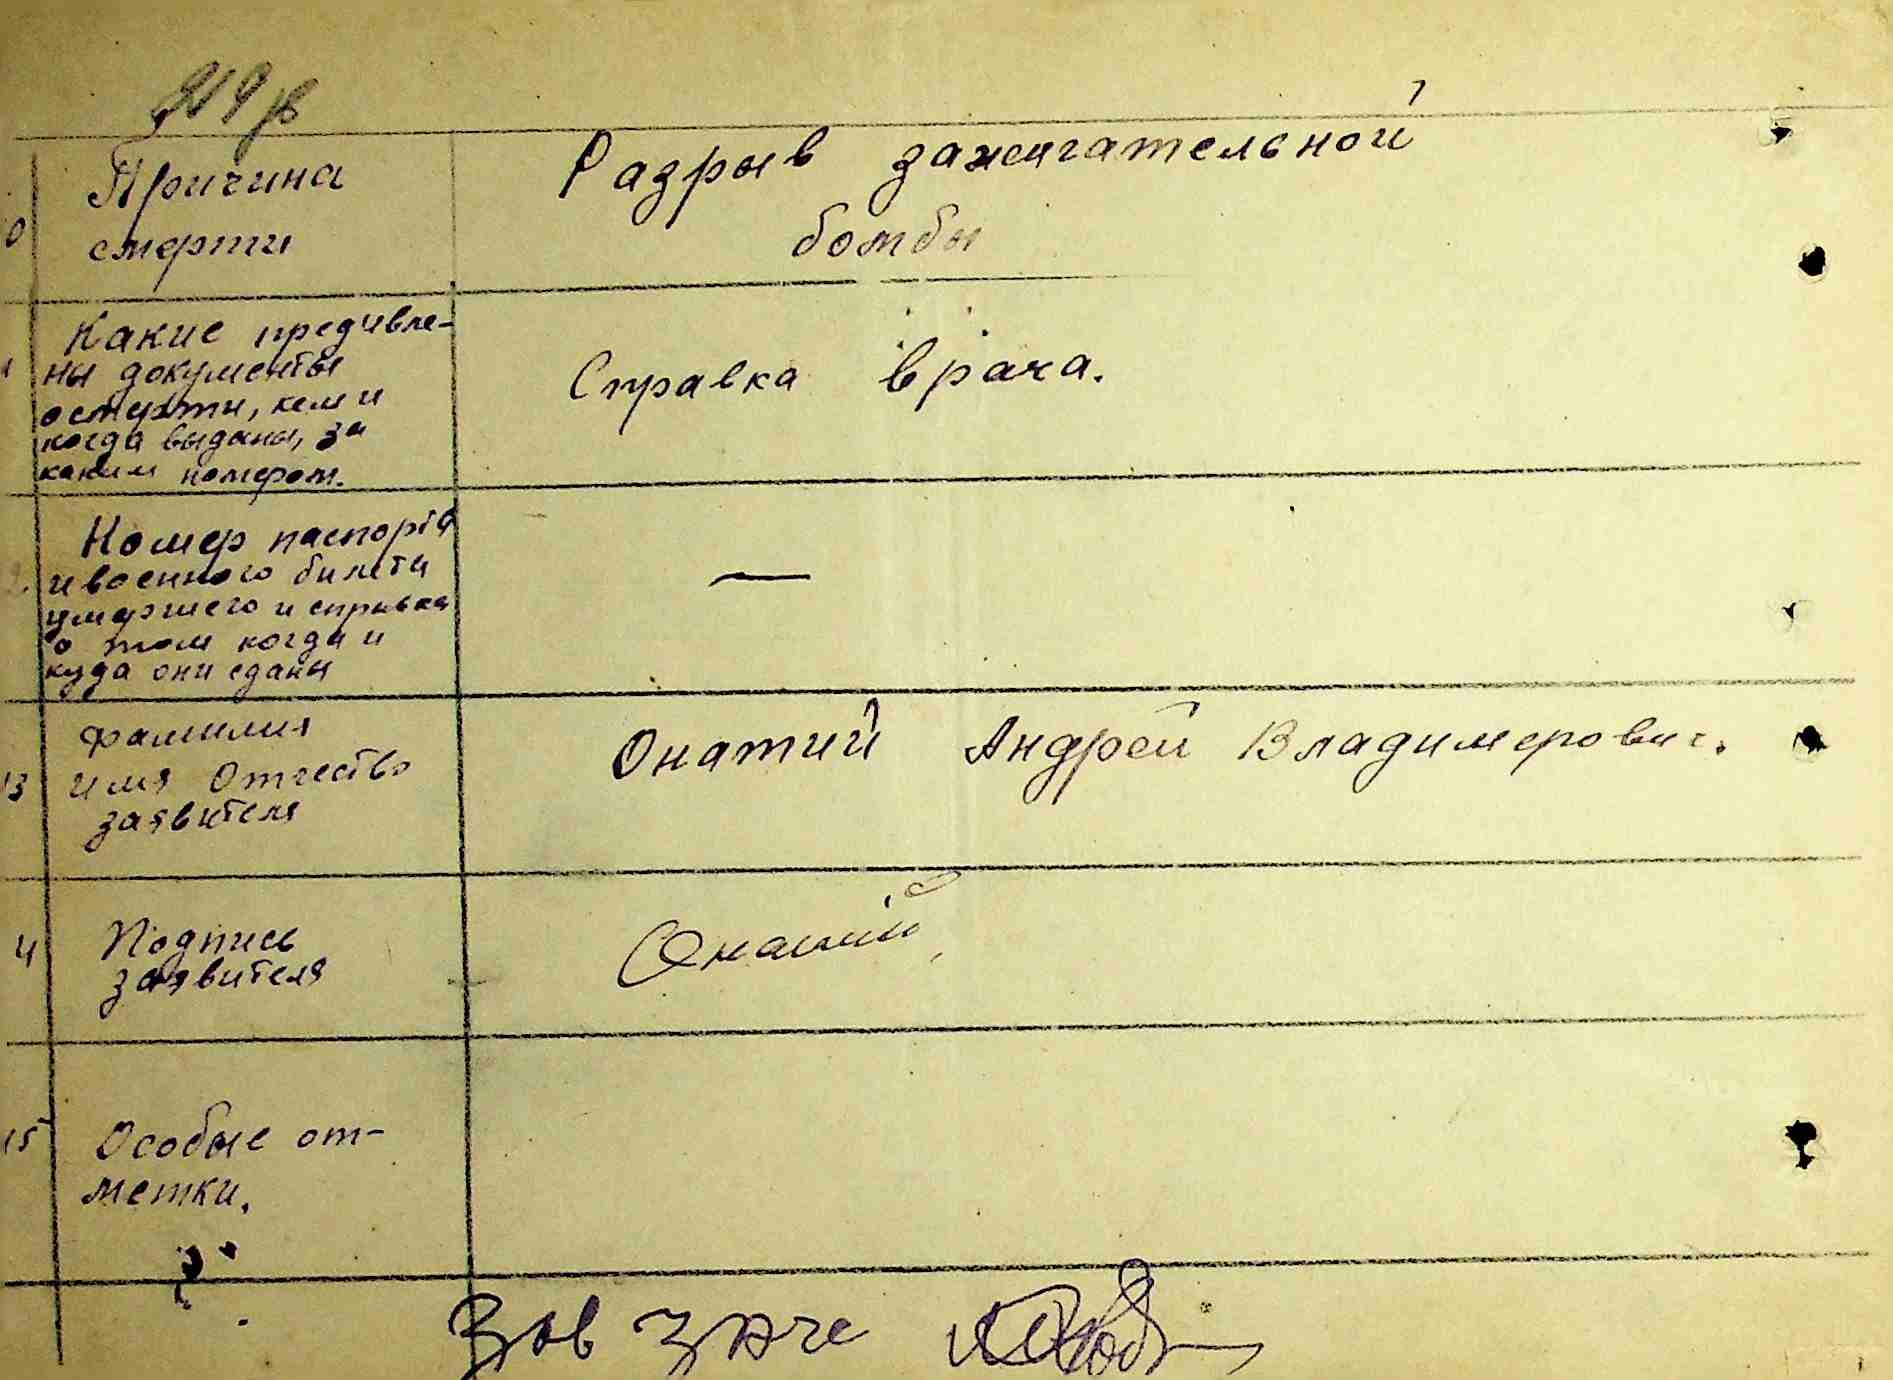 Причина
смерти
Разрыв зажигательной
бомбы
Какие предъявле-
ны документы
о смерти, кем и
когда выданы, за
каким номером.
Справка врача.
Номер паспорта
и военного билета
умершего и справка
о том когда и
куда они сданы
—
13
Фамилия
имя Отчество
заявителя
Онатий Андрей Владимерович.
4
Подпись
заявителя
Онатий
15
Особые от-
метки.
Зав загс